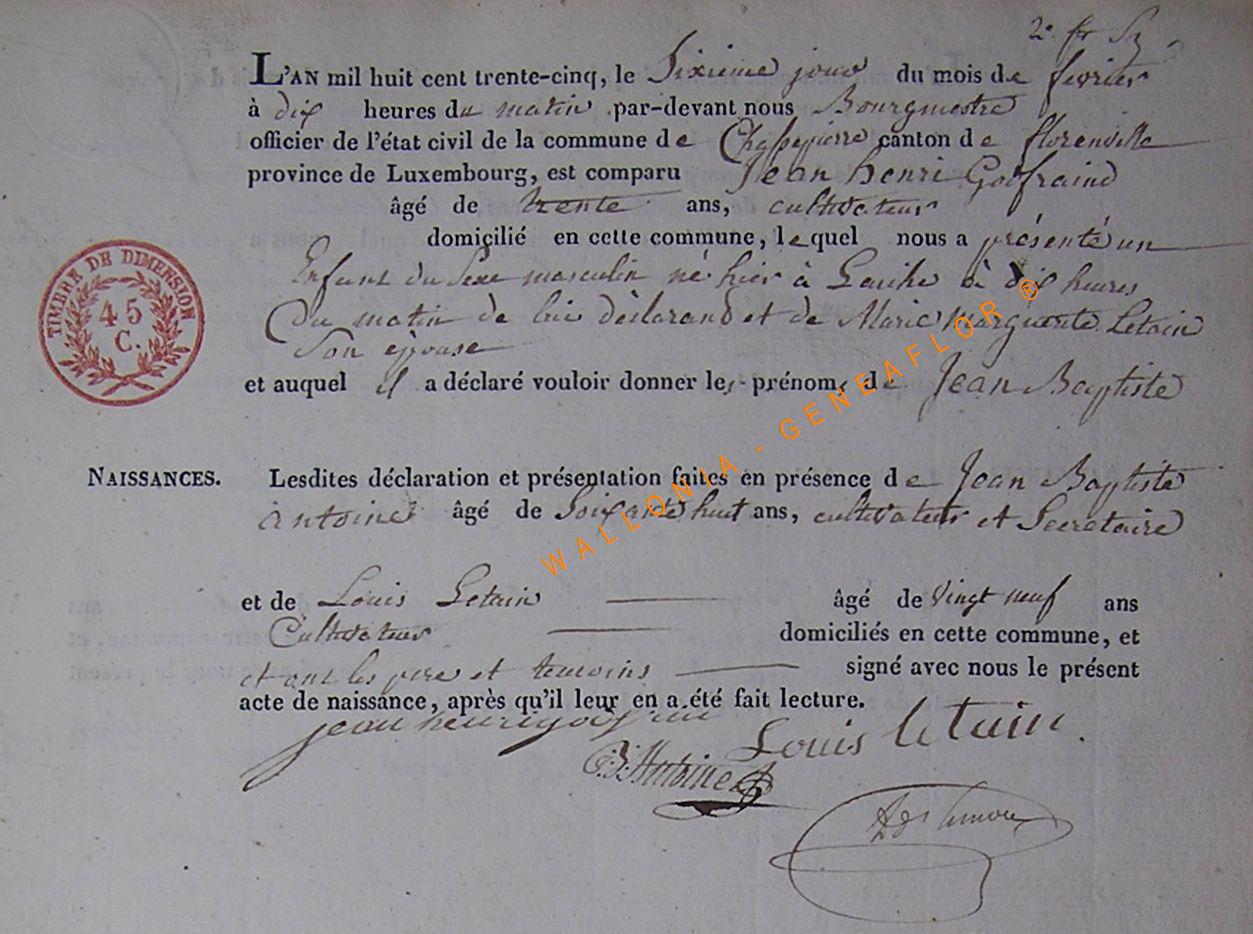 2e fr
L'AN mil huit cent trente-cinq, le Sixieme jour du mois de fevrier
à dix heures du matin par-devant nous Bourgmestre
officier de l'état civil de la commune de Chassepierre canton de florenville
province de Luxembourg, est comparu Jean henri Godfraind
âgé de trente ans, cultivateur
domicilié en cette commune, lequel nous a présenté un
Enfant du Sexe masculin né hier à Laiche à dix heures
Du matin de lui déclarand et de Marie Marguerite Letain
Son épouse
et auquel il a déclaré vouloir donner les prénoms de Jean Baptiste
NAISSANCES. Lesdites déclaration et présentation faites en présence de Jean Baptiste
antoine âgé de Soixante huit ans, cultivateur et Secretaire
et de Louis Letain âgé de Vingt neuf ans
Cultivateur domiciliés en cette commune, et
et ont les pere et temoins signé avec nous le présent
acte de naissance, après qu'il leur en a été fait lecture.
jean henri
Louis letain.
TIMBRE DE DIMENSION
45
C.
WALLONIA - GENEAFLOR ®